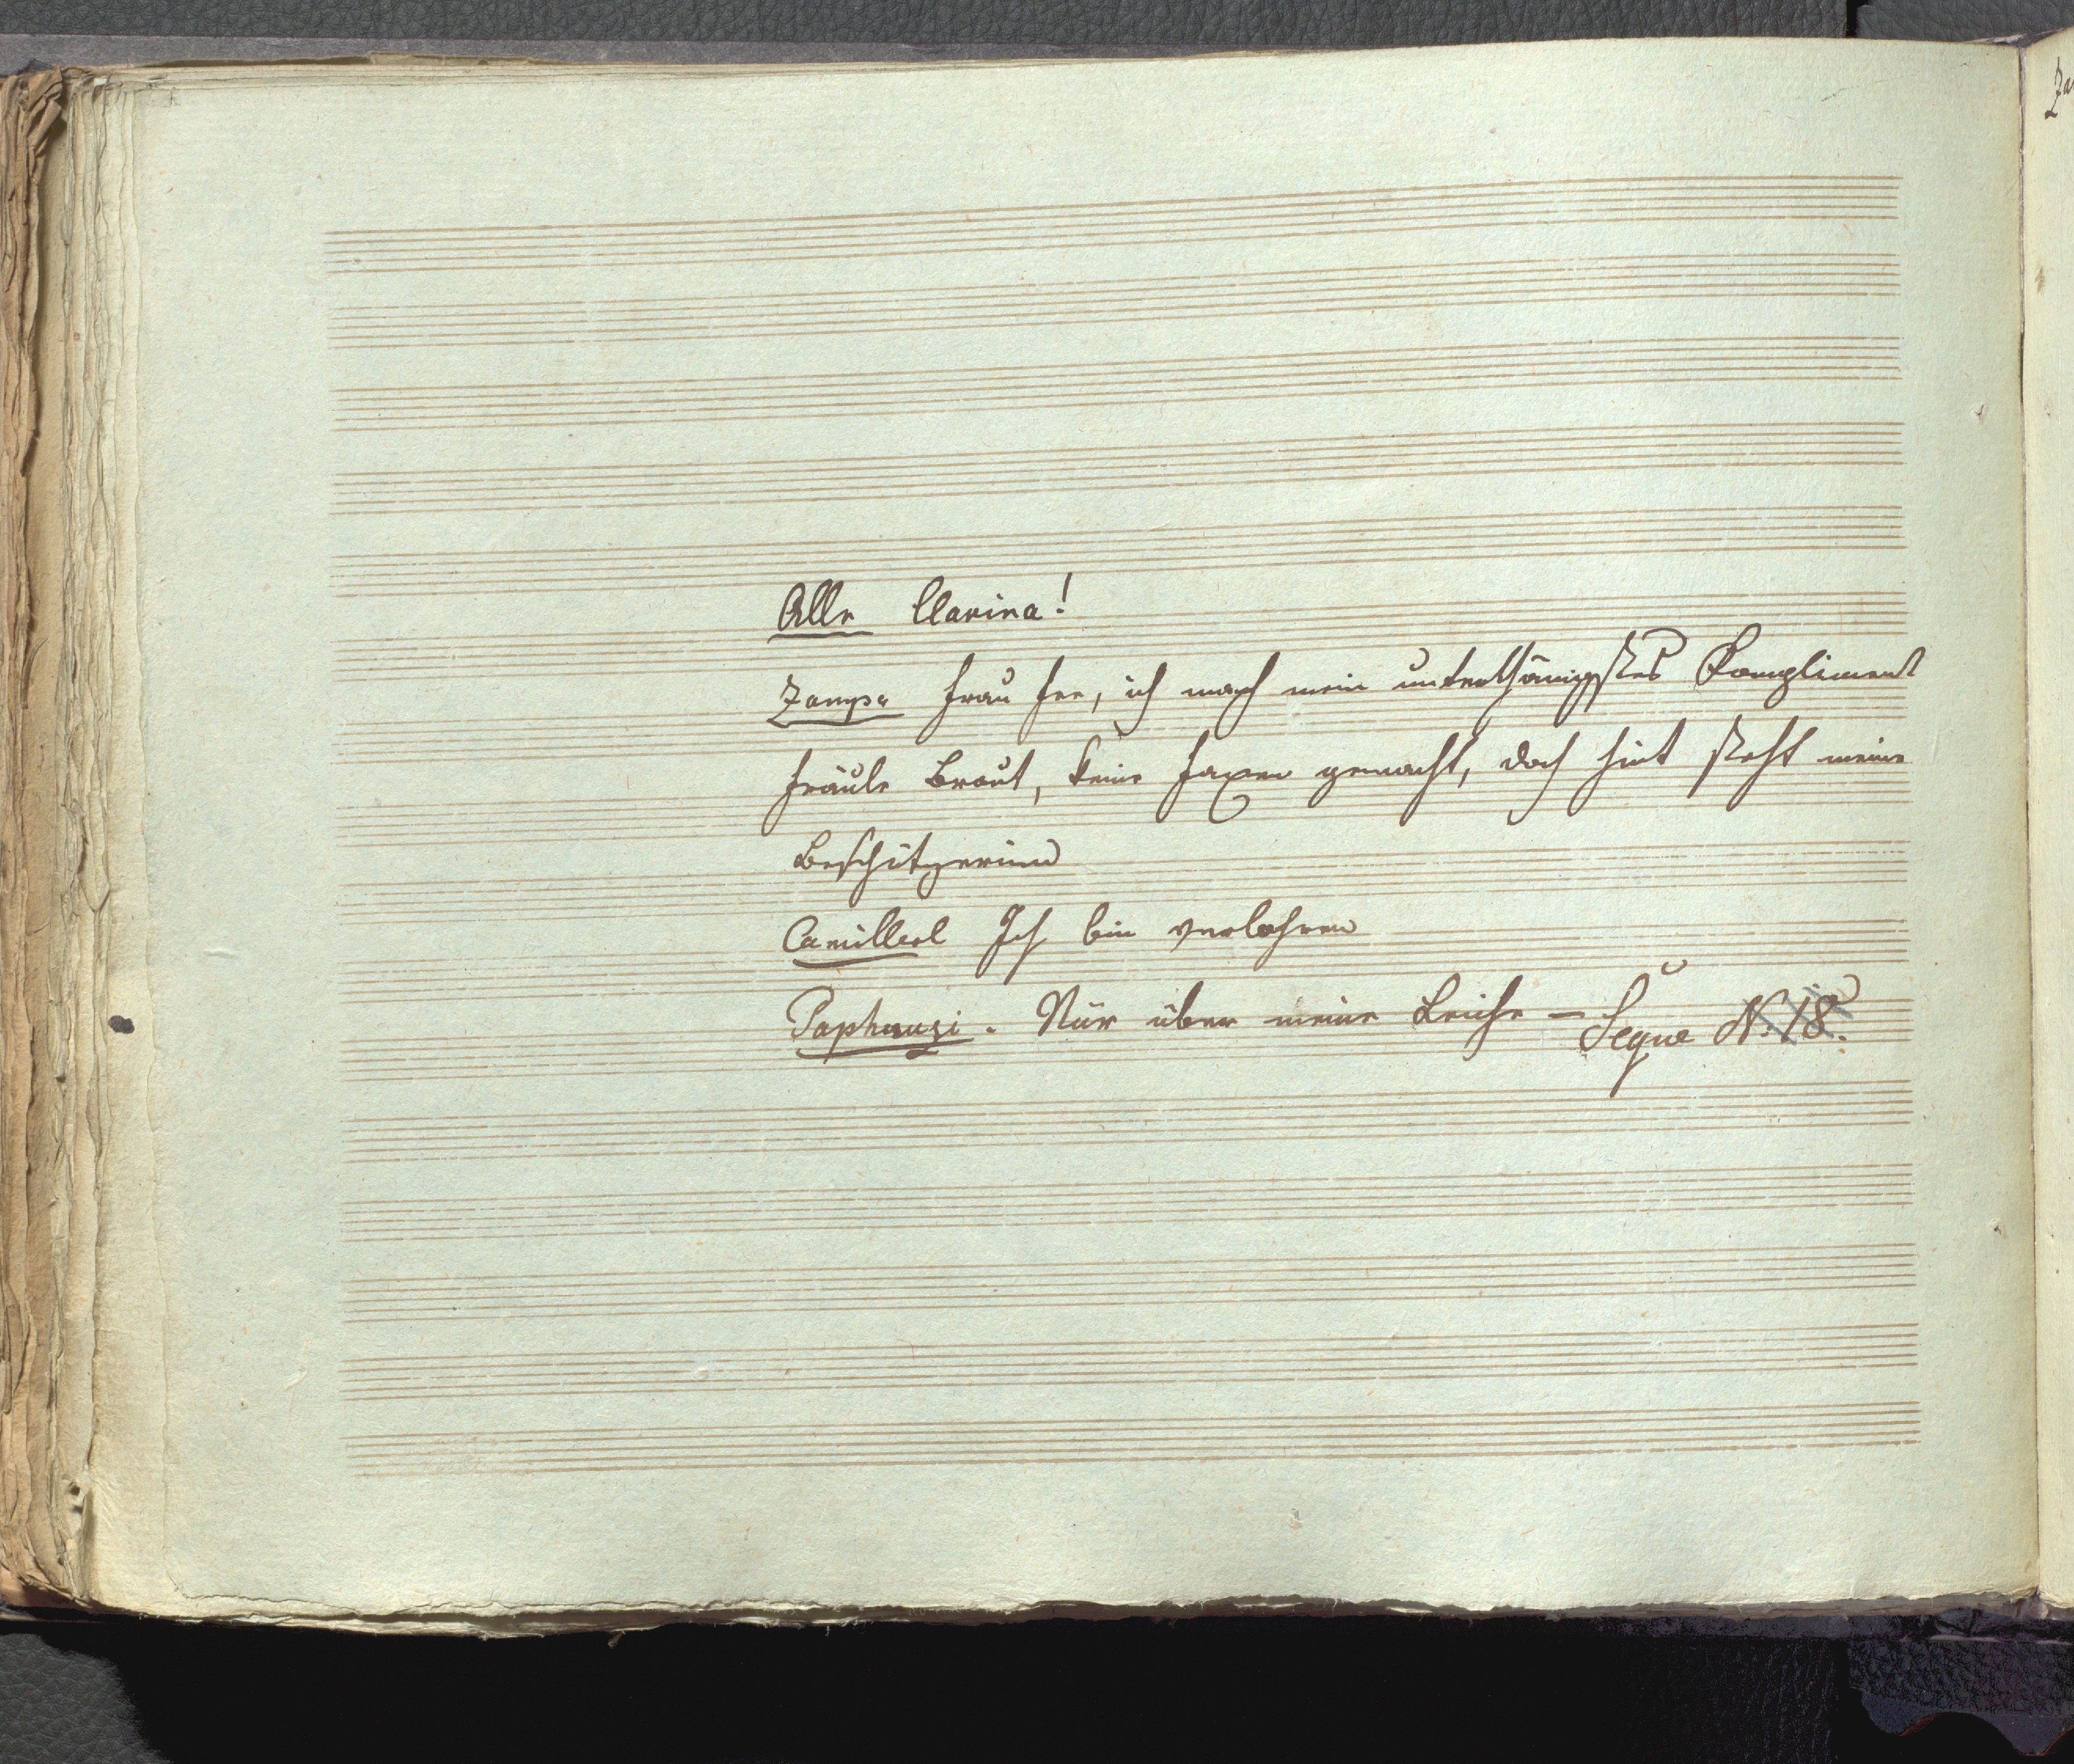 Alle Clarina!
Zampa Frau Fee, ich mach mein unterthänigstes Kompliment
Fräule Braut, keine Faxen gemacht, doch hint steht meine
Beschützerinn
Camillerl Ich bin verlohren
Paphnuzi. Nur über meine Leiche – Segue N. 18.